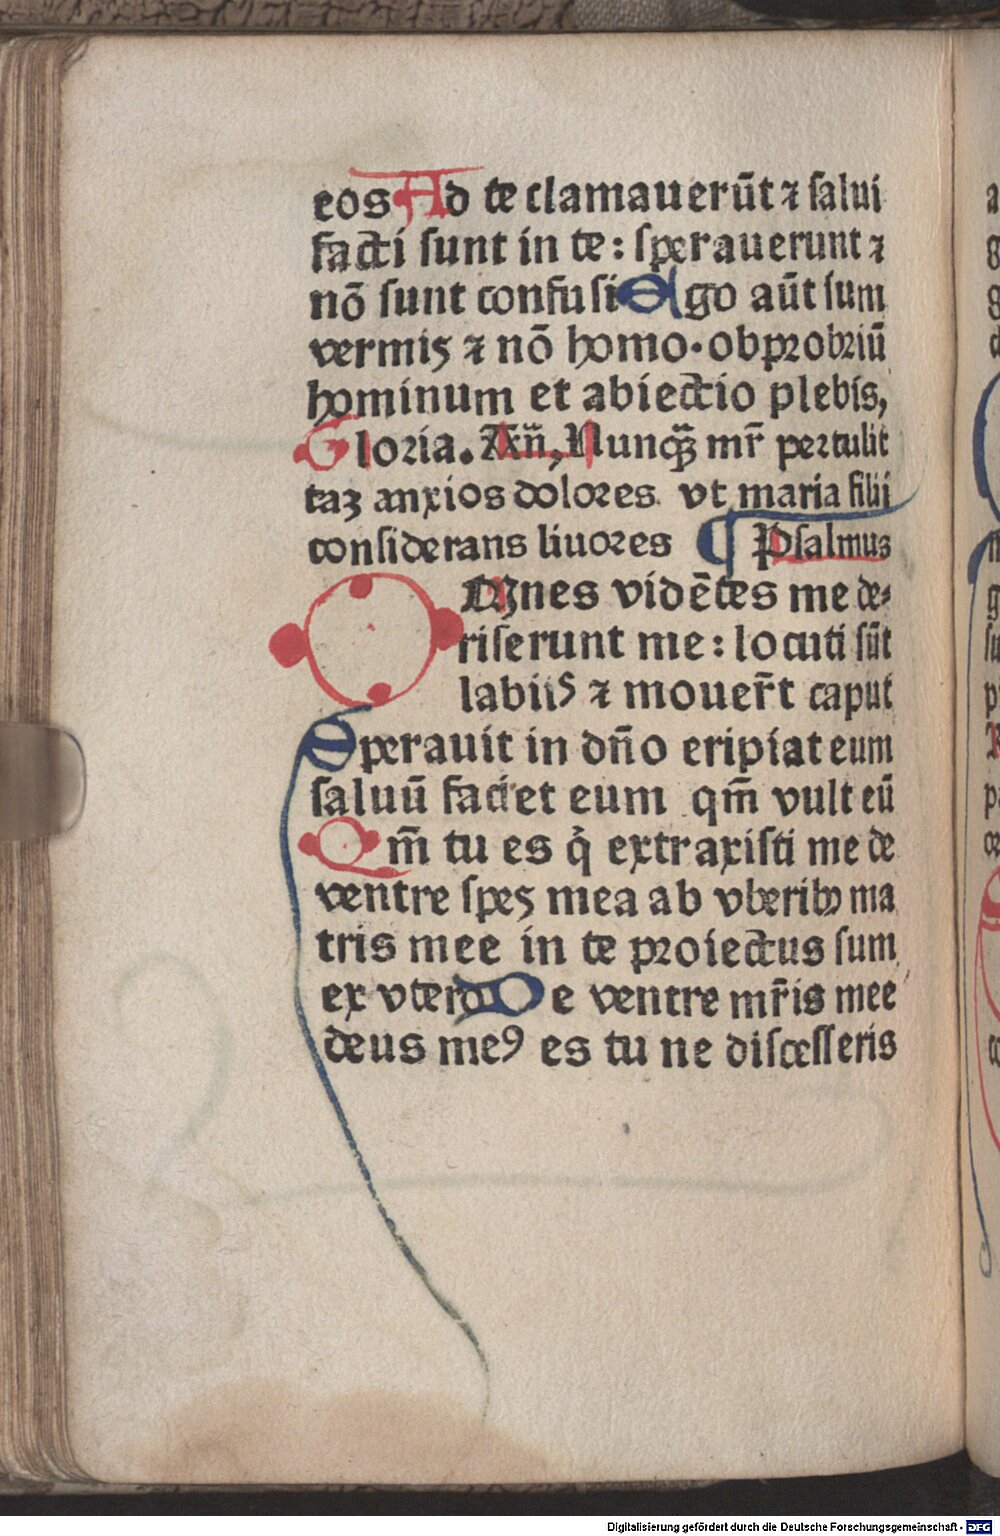 eos Ad te clamauerūt ⁊ ſalui
facti ſunt in te: ſperauerunt ⁊
nō ſunt confuſi Ego aūt ſum
vermis ⁊ nō homo. obprobriū
hominum et abiectio plebis,
Gloria. An̄, Nunqꝫ mr̄ pertulit
taꝫ anxios dolores vt maria filii
conſiderans liuores ¶ Pſalmus
OMnes vidētes me de⸗
riſerunt me: locuti ſūt
labiis ⁊ mouer̄t caput
Sperauit in dn̄o eripiat eum
ſaluū faciet eum qm̄ vult eū
Qm̄ tu es q̇ extraxiſti me de
ventre ſpes mea ab vberibꝰ ma
tris mee in te proiectus ſum
ex vtero De ventre mr̄is mee
deus meꝰ es tu ne diſceſſeris
Digitalisierung gefördert durch die Deutsche Forschungsgemeinschaft - DFG